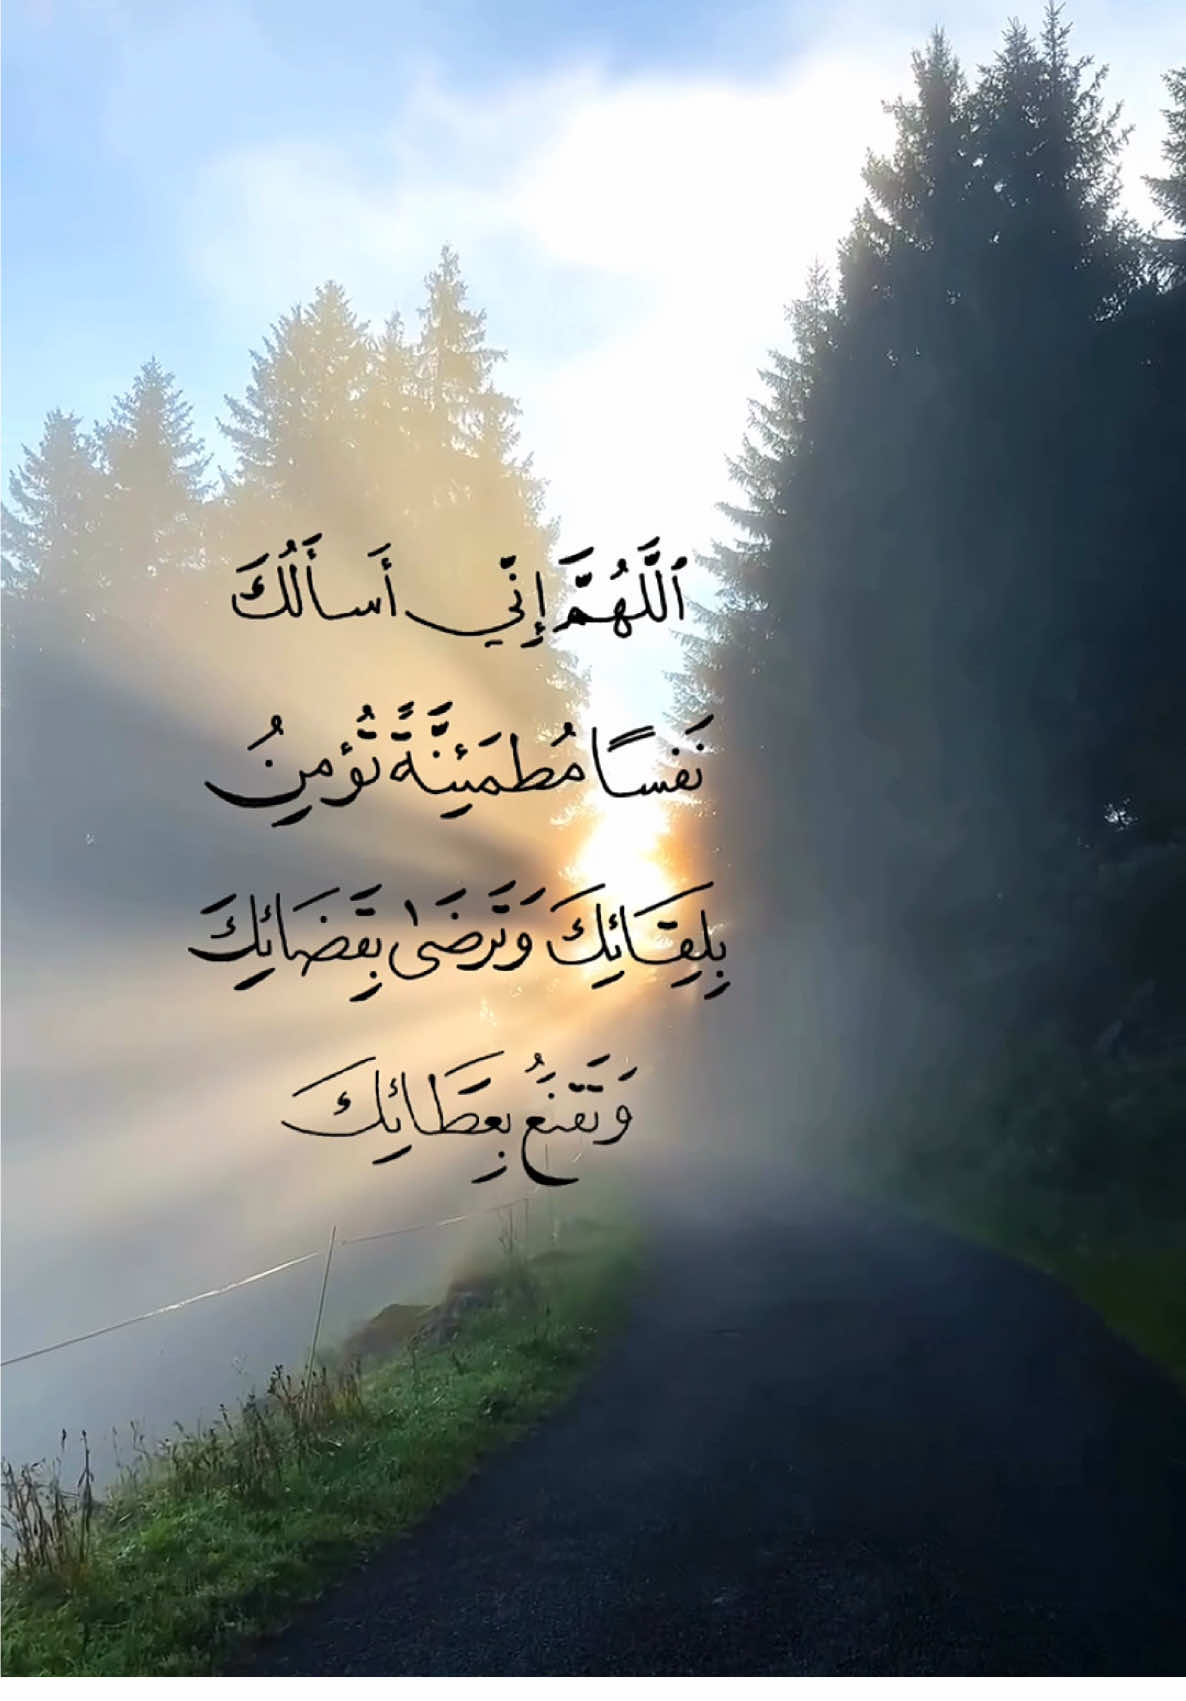 ٱللَّهُمَّ إِنِّي أَسأَلُكَ
نَفسًا مُطمَئِنَّةً تُؤمِنُ
بِلِقَائِكَ وَتَرضَىٰ بِقَضَائِكَ
وَتَقنَعُ بِعَطَائِكَ